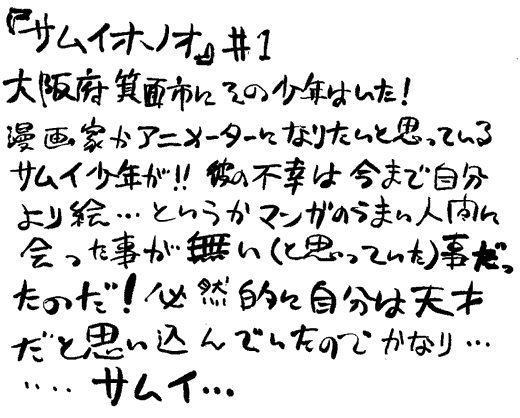 『サムイホノオ』#1
大阪府箕面市にその少年はいた！
漫画家かアニメーターになりたいと思っている
サムイ少年が!! 彼の不幸は今まで自分
より絵…というかマンガのうまい人間に
会った事が無い(と思っていた)事だっ
たのだ！必然的に自分は天才
だと思い込んでいたのでかなり…
‥‥サムイ…